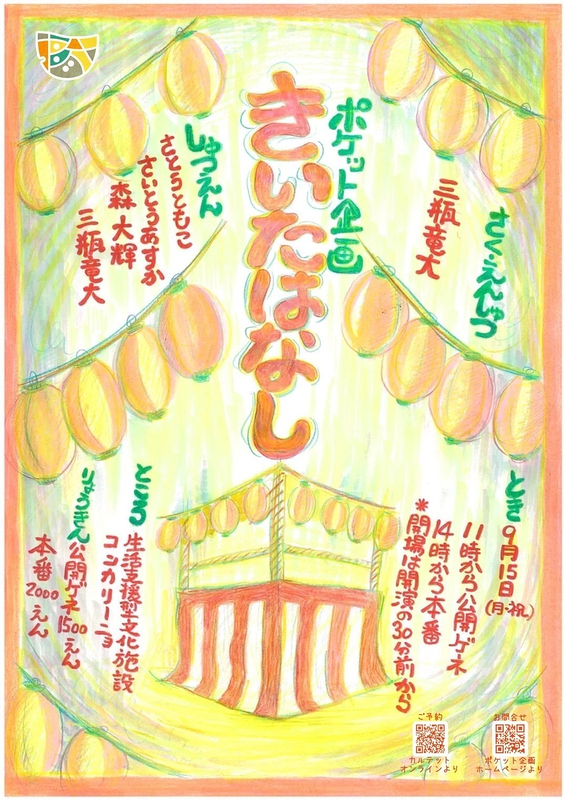 ポケット企画
きいたはなし
さく・えんしゅつ
三瓶竜大
しゅつえん
さとうともこ
さいとうあすか
森 大輝
三瓶竜大
とき
9月15日(月・祝)
11時から公開ゲネ
14時から本番
*開場は開演の30分前から
ところ
生活支援型文化施設
コンカリーニョ
りょうきん
公開ゲネ1500えん
本番2000えん
ご予約
カルテット
オンラインより
お問合せ
ポケット企画
ホームページより